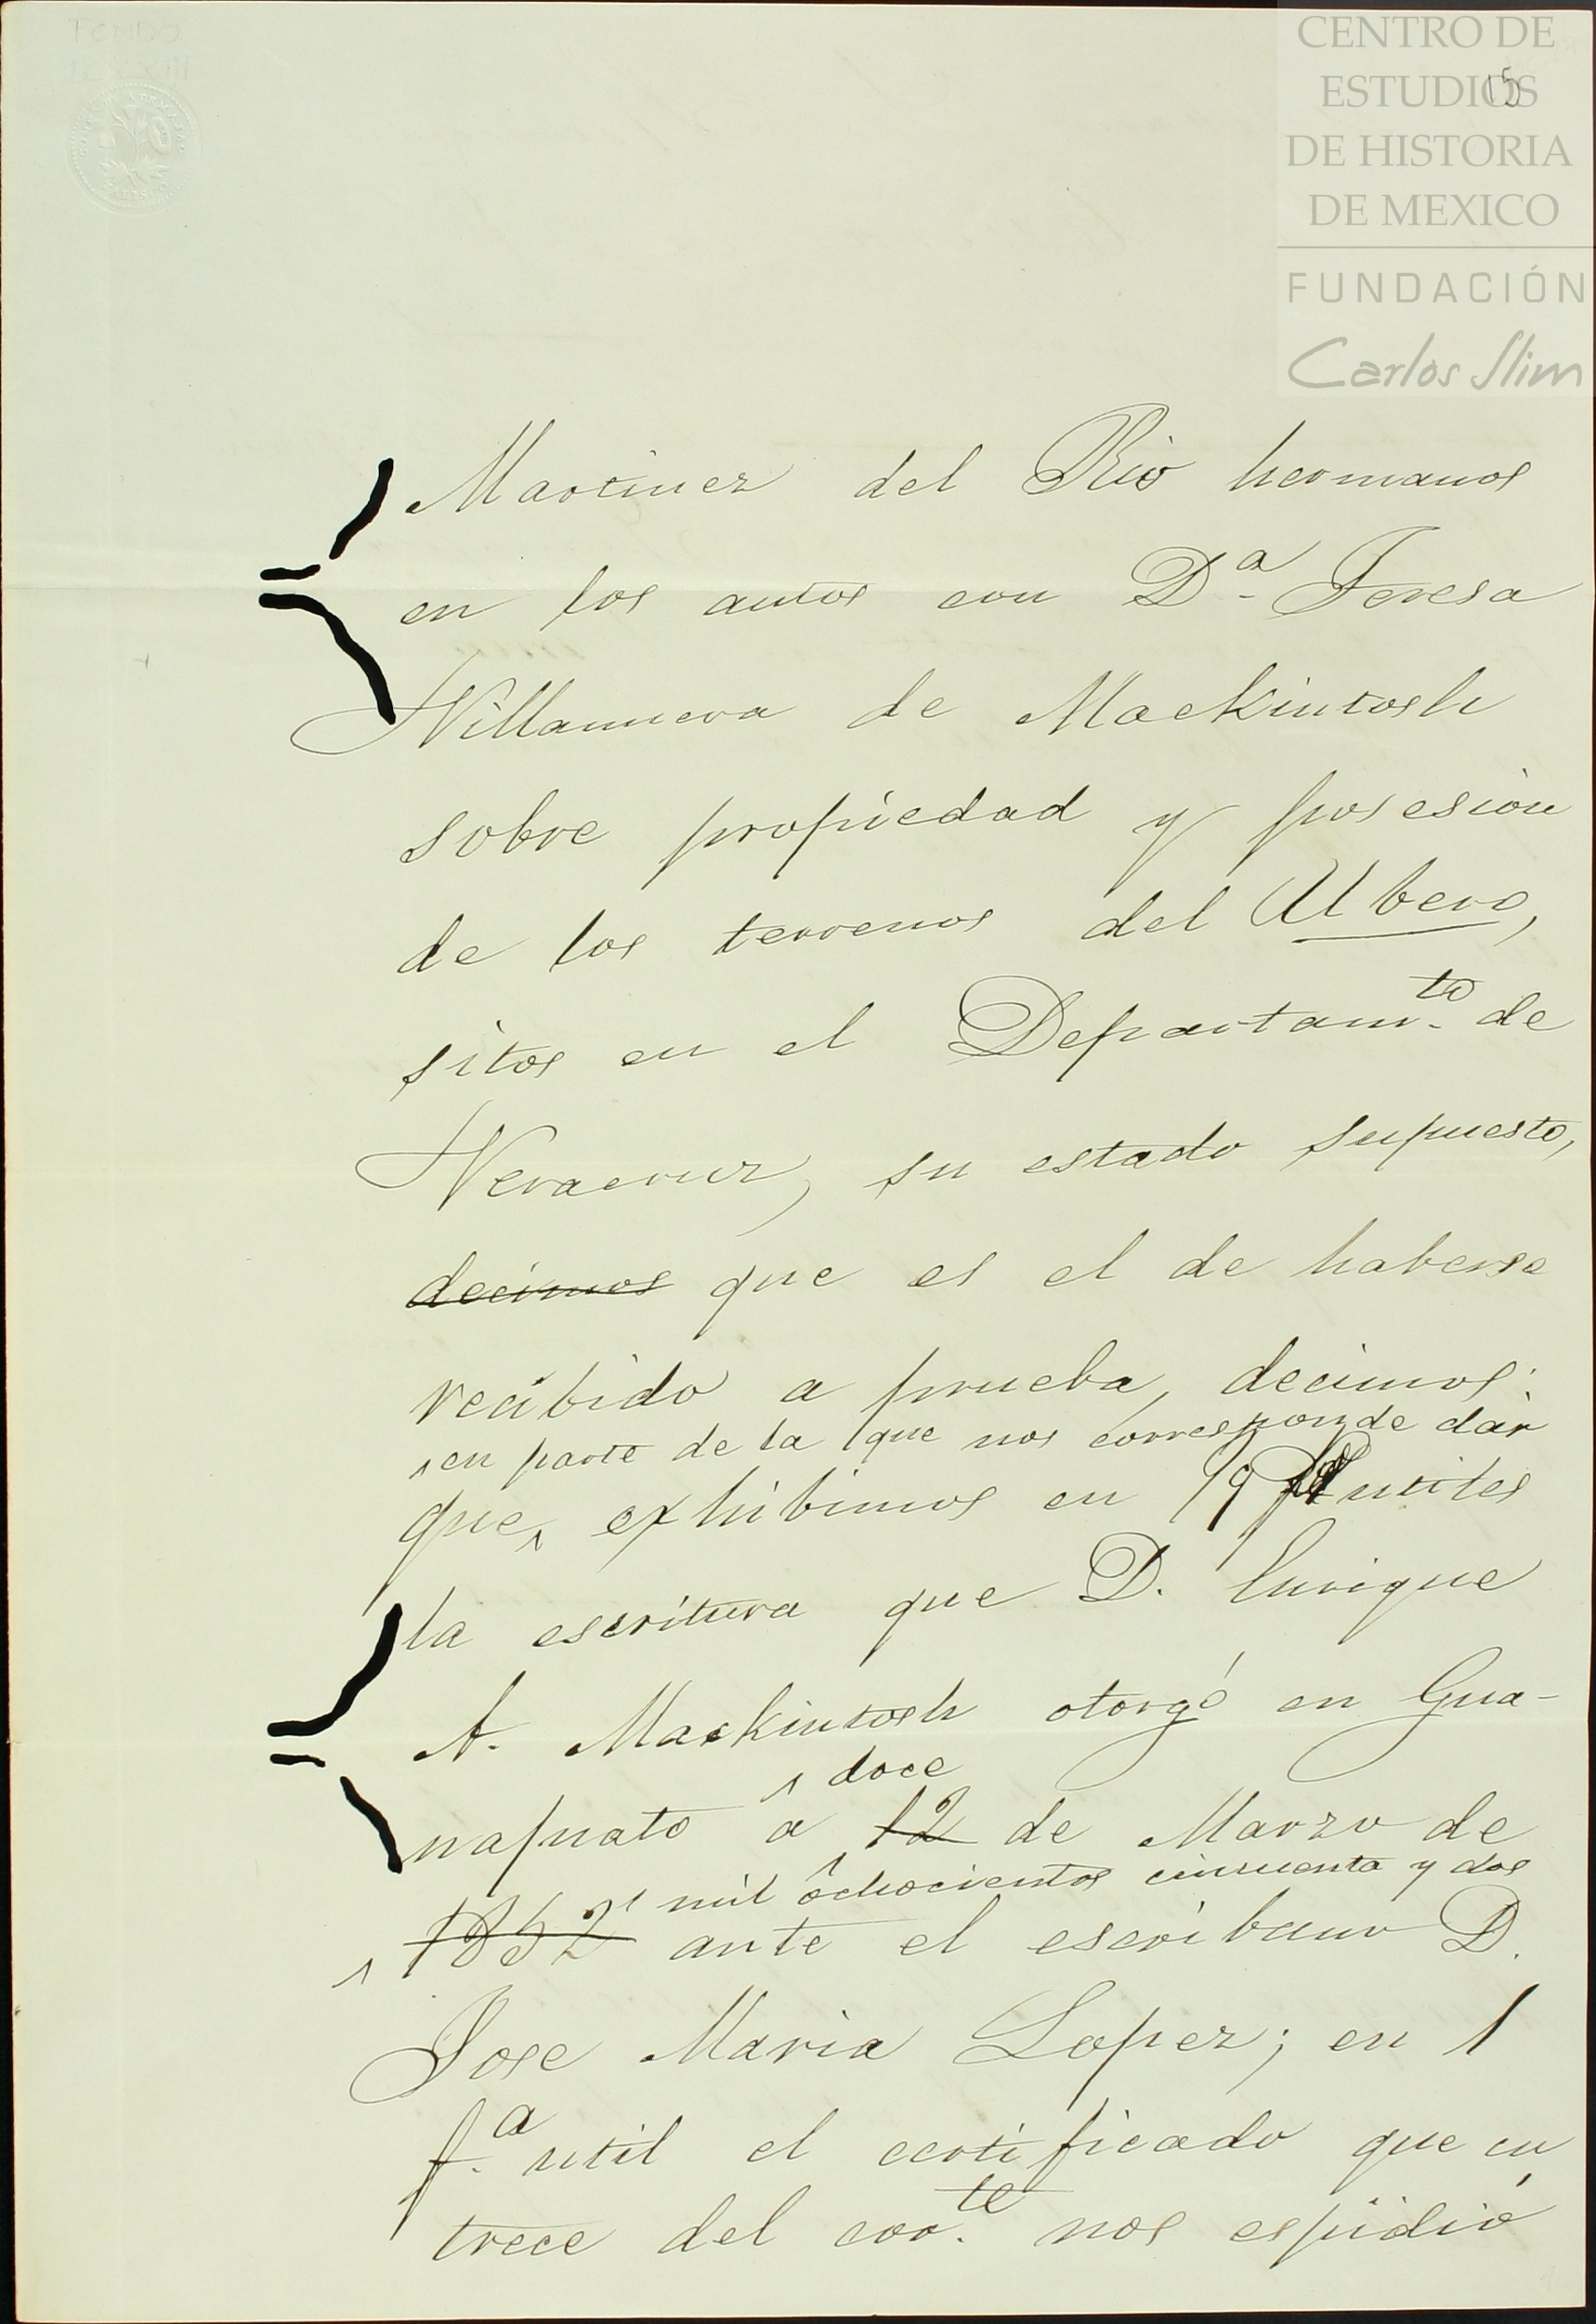 FONDO
CENTRO DE
ESTUDIOS
DE HISTORIA
DE MEXICO
FUNDACIÓN
Carlos Slim
15
Martinez del Rio hermanos
en los autos con D.ª Teresa
Villanueva de Mackintosh
sobre propiedad y posesion
de los terrenos del Ubero,
sitos en el Departam.to de
Veracruz, su estado supuesto,
decimos que es el de haberse
recibido a prueba, decimos:
en parte de la que nos corresponde dar
que, exhibimos en 19 utiles
la escritura que D. Enrique
A. Mackintosh otorgó en Gua-
doce
najuato a 12 de Marzo de
mil ochocientos cincuenta y dos
1852 ante el escribano D.
Jose Maria Lopez; en 1
f.ª util el certificado que en
trece del cor.te nos espidió